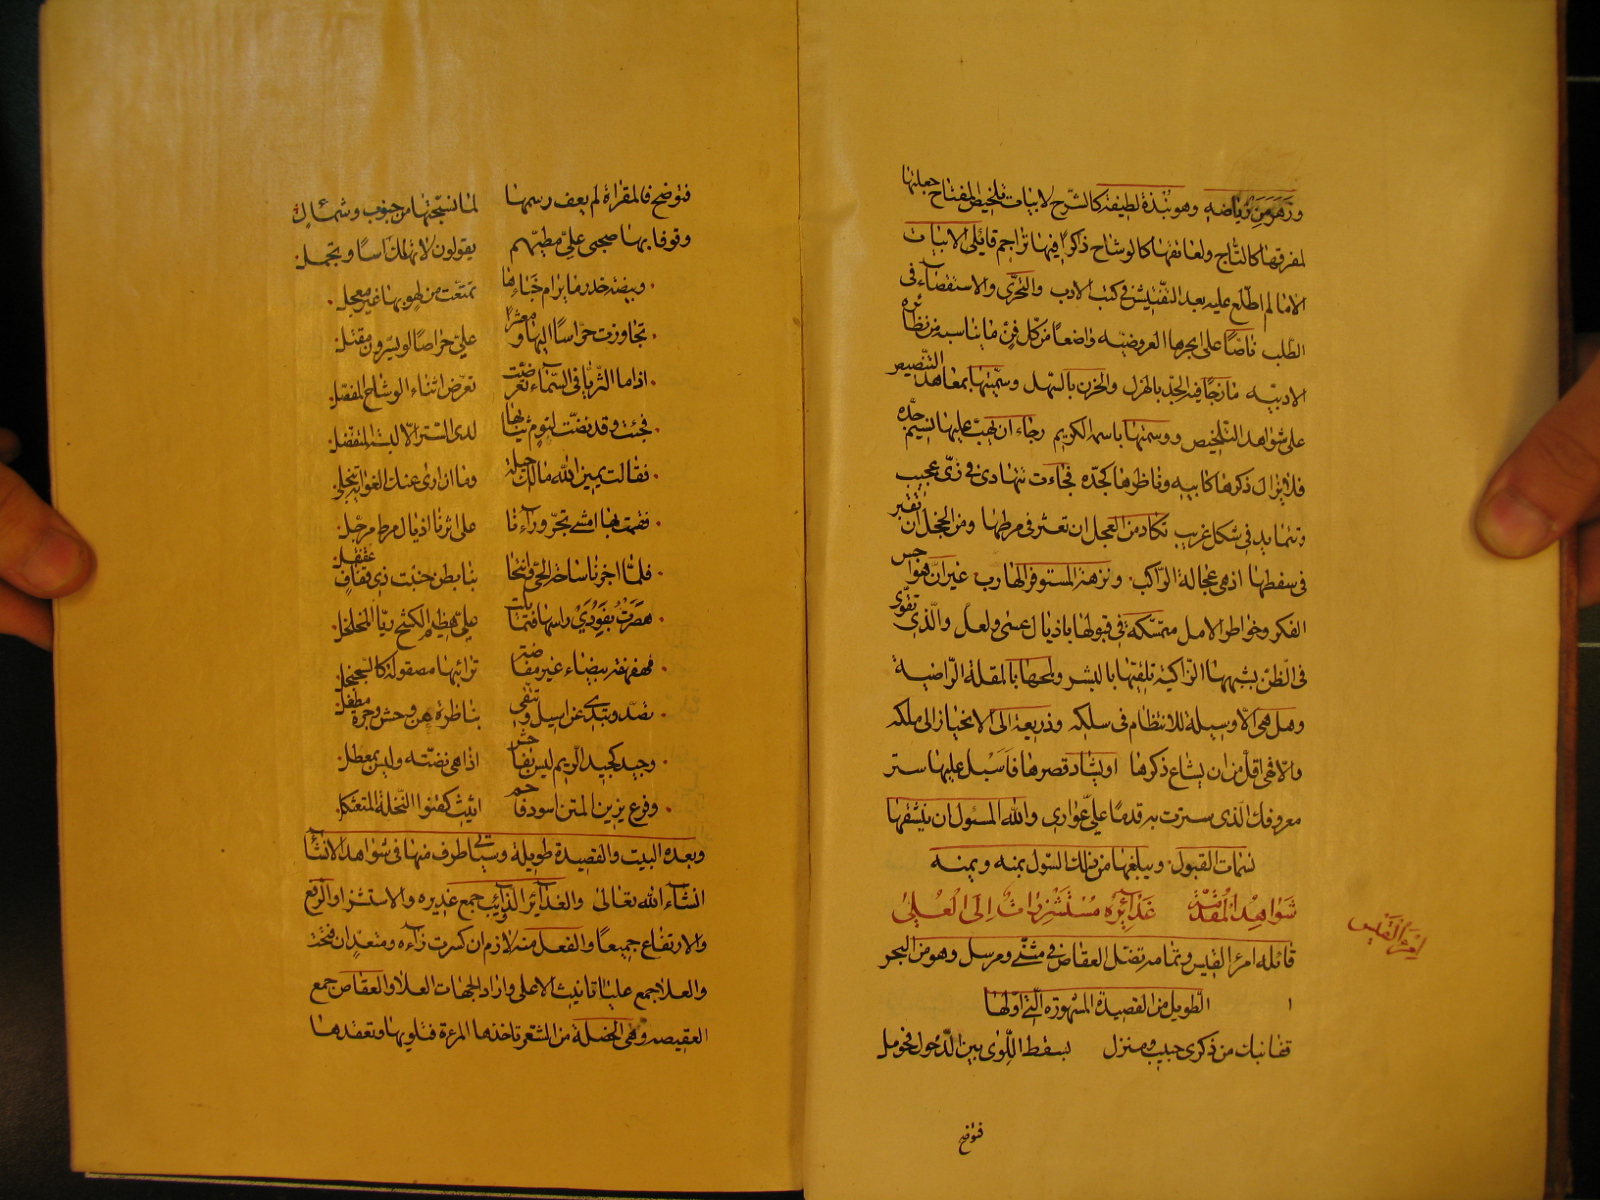 وزهر من رياضه وهو نبذة لطيفة كالشرح لابيات تلخيص المفتاح جعلتها
لمفرقها كالتاج ولعاتقها كالوشاح ذاكرا فيها تراجم قائلى الابيات
الا ما لم اطلع عليه بعد التفتيش فى كتب الادب والتحرى والاستقصاء فى
الطلب ناصا على ابحرها العروضيه واضعا من كل فن ما يناسبه من نظائره
الادبيه مازجا فيه الجد بالهزل والحزن بالسهل وسميتها بمعاهد التنصيص
على شواهد التلخيص ووسمتها باسمه الكريم رجاء ان يهب عليها نسيم جده
فلا يزال ذكرها كابيه وناظرها كجده فجاءت تتهادى فى زى عجيب
وتتمايد فى شكل غريب تكاد من العجل ان تعثر فى مرطها ومن الخجل ان تقبر
فى سفطها اذ هى عجالة الراكب ونزهة المستوفز الهارب غير ان هواجس
الفكر وخواطر الامل متمسكة فى قبولها باذيال عسى ولعل والذى تقوى
فى الظن بشيمها الزاكية تلقيها بالبشر ولمحها بالمقلة الراضية
وهل هى الا وسيلة للانتظام فى سلكه وذريعة الى الانحياز الى ملكه
والا فهى اقل من ان يشاع ذكرها او يشاد قصرها فاسبل عليها ستر
معروفك الذى سترت به قدما على عوارى والله المسئول ان ينشقها
نسمات القبول ويبلغها من ذلك السول بمنه ويمنه
شواهد المقدمة غدائره مستشزرات الى العلى
امرئ القيس
قائله امرؤ القيس وتمامه تضل العقاص فى مثنى ومرسل وهو من البحر
الطويل من القصيدة المشهورة التى اولها
قفا نبك من ذكرى حبيب ومنزل بسقط اللوى بين الدخول فحومل
فتوضح
فتوضح فالمقراة لم يعف رسمها لما نسجتها من جنوب وشمأل
وقوفا بها صحبى على مطيهم يقولون لا تهلك اسا وتجمل
وبيضة خدر ما يرام خباءها تمتعت من لهو بها غير معجل
تجاوزت حراسا اليها ومعشرا على حراصا لو يسرون مقتل
اذا ما الثريا فى السماء تعرضت تعرض اثناء الوشاح المفصل
فجئت وقد نضت لنوم ثيابها لدى الستر الا لبسة المتفضل
فقالت يمين الله مالك حيلة وما ان ارى عنك الغواية تنجلى
فقمت بها امشى تجر وراءنا على اثرنا اذيال مرط مرجل
فلما اجزنا ساحة الحى وانتحا بنا بطن خبت ذى قفاف عقنقل
هصرت بفودى راسها فتمايلت على هظيم الكشح ريا المخلخل
مهفهفة بيضاء غير مفاضة ترائبها مصقولة كالسجنجل
تصد وتبدى عن اسيل وتتقى بناظرة من وحش وجرة مطفل
وجيد كجيد الريم ليس بفاحش اذا هى نضته ولا بمعطل
وفرع يزين المتن اسود فاحم اثيث كقنو النخلة المتعثكل
وبعده البيت والقصيدة طويلة وسياتى طرف منها فى شواهد الانشاء
انشاء الله تعالى والغدائر الذوائب جمع غديره والاستشزار الرفع
والارتفاع جميعا والفعل منه لازم ان كسرت زاءه ومتعد ان فتحت
والعلا جمع عليا تانيث الاعلى واراد الجهات العلا والعقاص جمع
العقيصه وهى الخصلة من الشعر تاخذها المرءة فتلويها وتعقدها